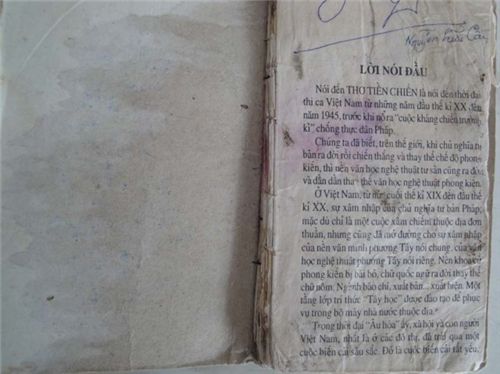 Nguyễn Hữu
LỜI NÓI ĐẦU
Nói đến THƠ TIỀN CHIẾN là nói đến thời đại
thi ca Việt Nam từ những năm đầu thế kỉ XX đến
năm 1945, trước khi nổ ra "cuộc kháng chiến trường
kì" chống thực dân Pháp.
Chúng ta đã biết, trên thế giới, khi chủ nghĩa tư
bản ra đời rồi chiến thắng và thay thế chế độ phong
kiến, thì nền văn học nghệ thuật tư sản cũng ra đời
và dần dần thay thế văn học nghệ thuật phong kiến.
Ở Việt Nam, từ nửa cuối thế kỉ XIX đến đầu thế
kỉ XX, sự xâm nhập của chủ nghĩa tư bản Pháp,
mặc dù chỉ là một cuộc xâm chiếm thuộc địa đơn
thuần, nhưng cũng đã mở đường cho sự xâm nhập
của nền văn minh phương Tây nói chung, của văn
học nghệ thuật phương Tây nói riêng. Nền khoa cử
phong kiến bị bãi bỏ, chữ quốc ngữ ra đời thay thế
chữ nôm. Ngành báo chí, xuất bản... xuất hiện. Một
tầng lớp trí thức "Tây học" được đào tạo để phục
vụ trong bộ máy nhà nước thuộc địa.
Trong thời đại "Âu hóa" ấy, xã hội và con người
Việt Nam, nhất là ở các đô thị, đã trải qua một
cuộc biến cải sâu sắc. Đó là cuộc biến cải tất yếu.